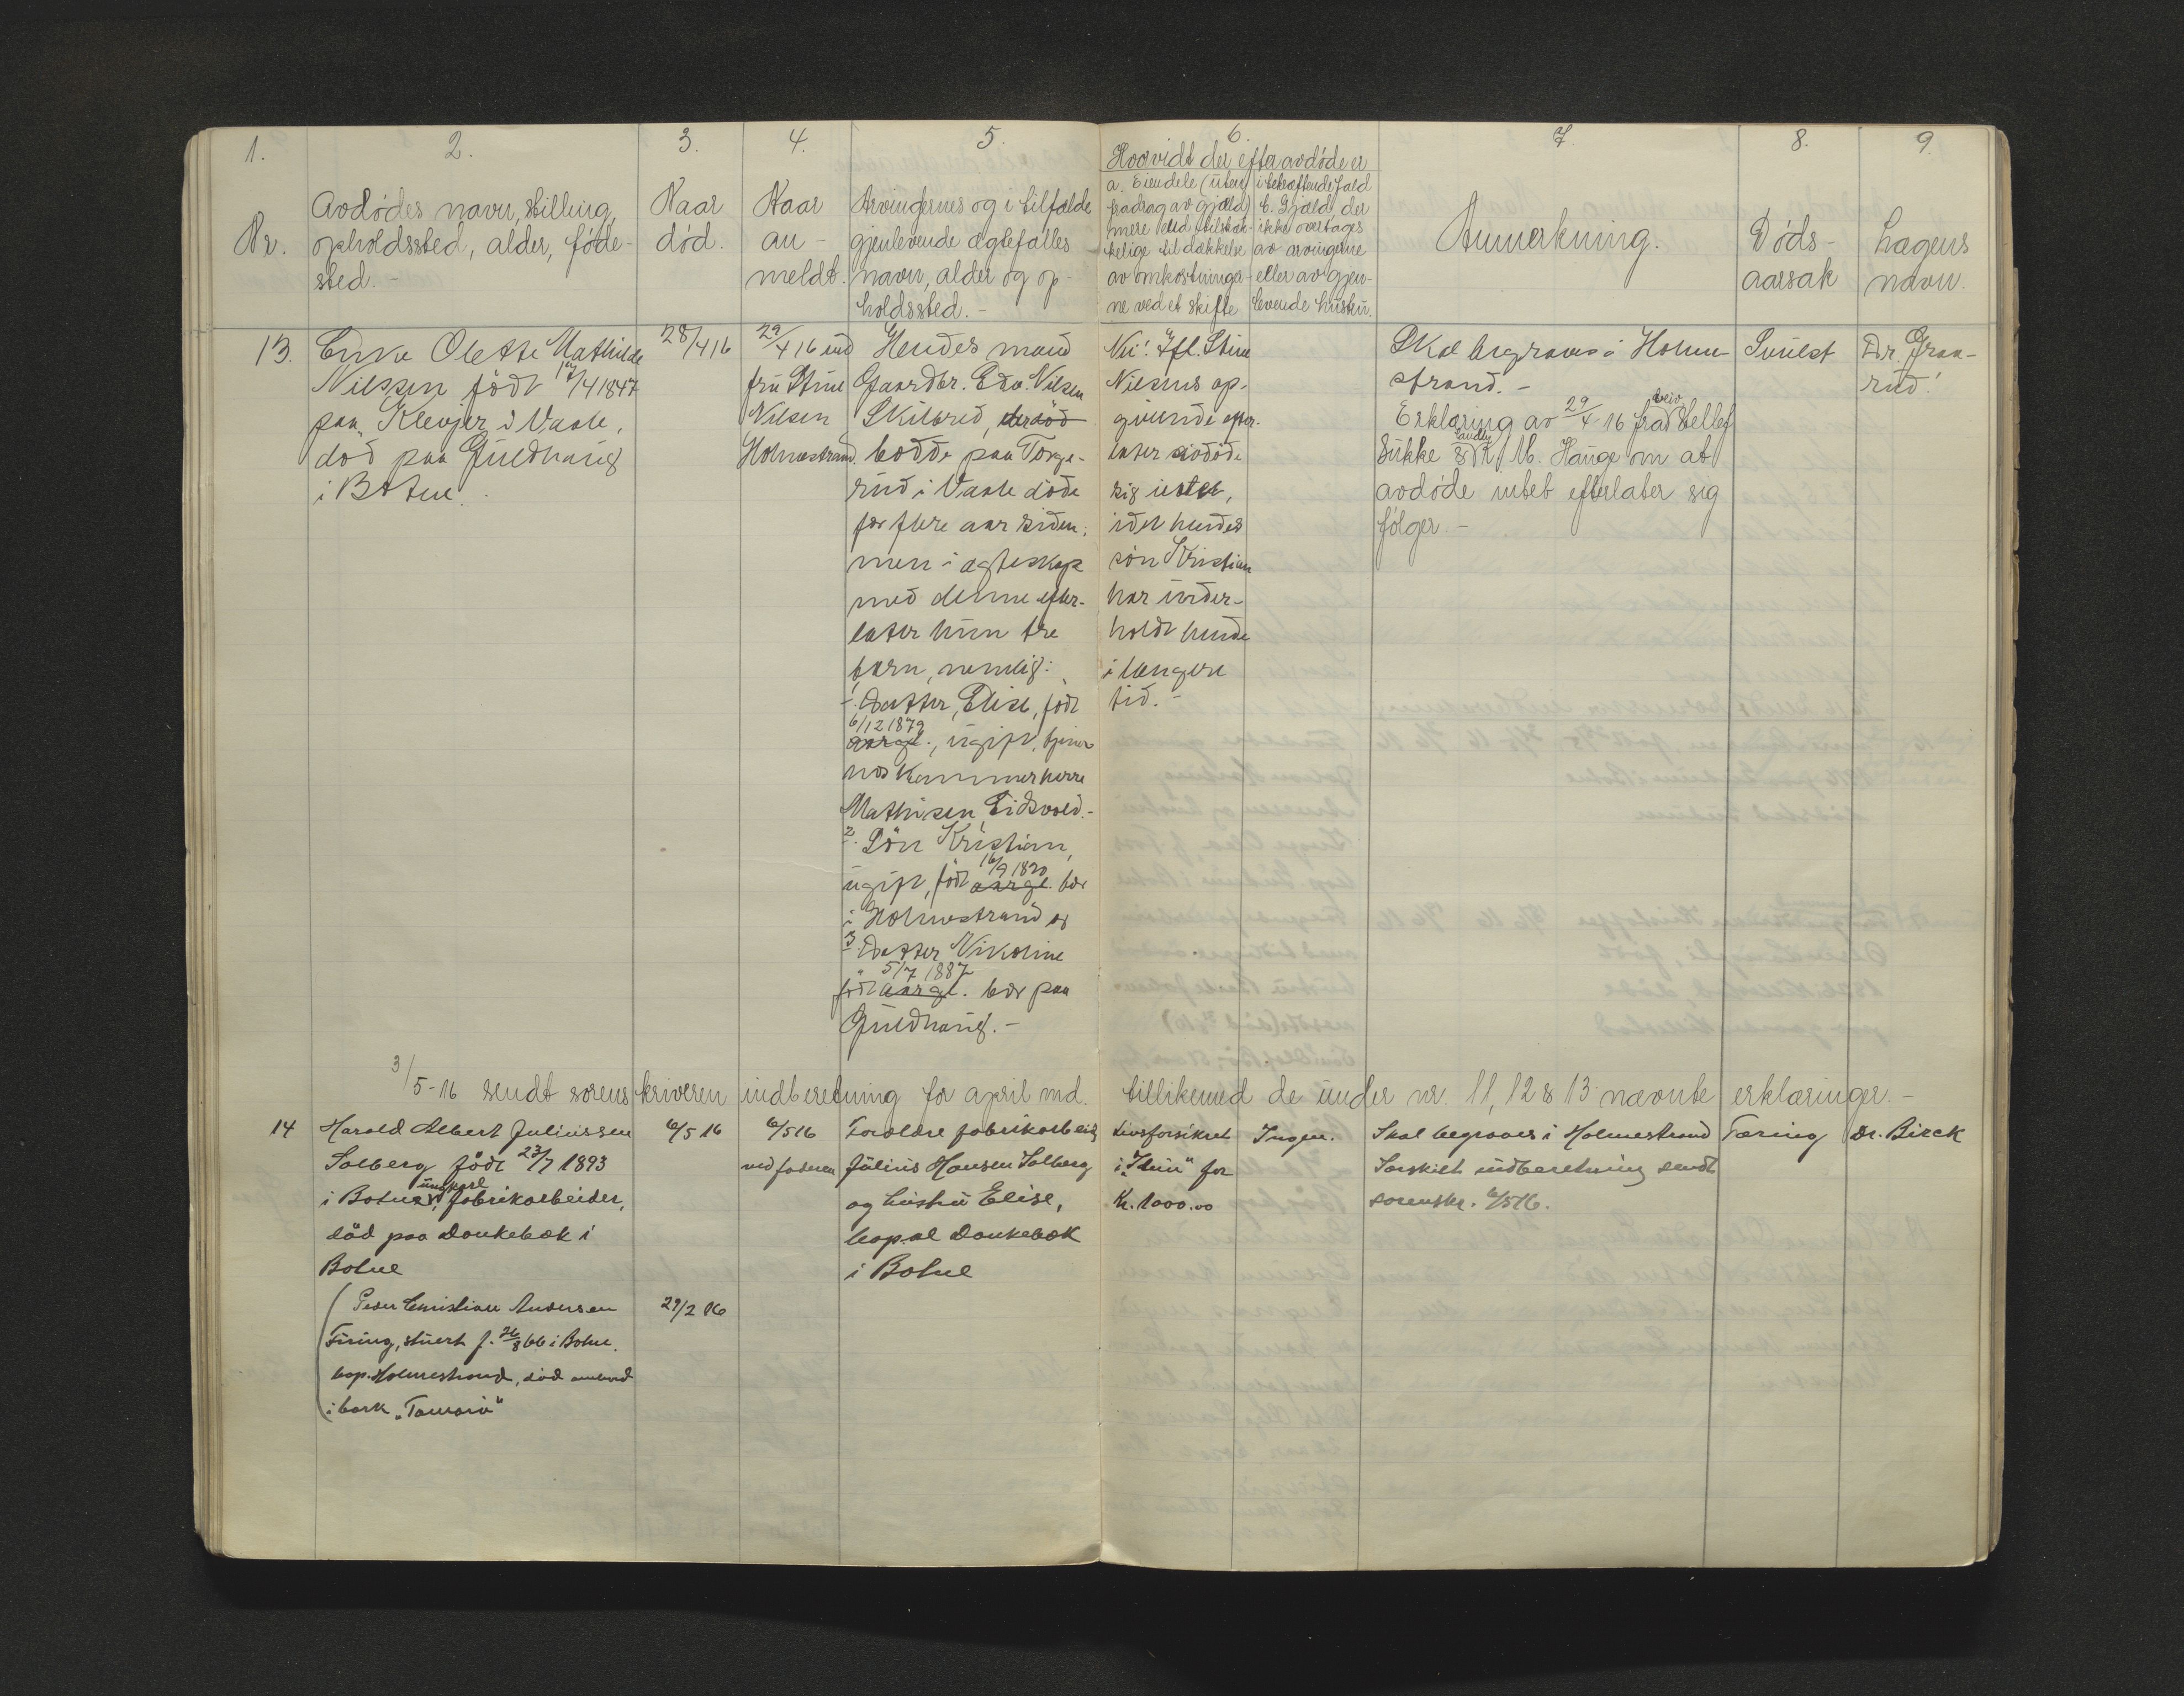 1.
2.
3.
4.
5.
6.
7.
8.
9.
Nr.
Avdødes navn, stilling,
opholdssted, alder, føde-
sted. -
Naar
død.
Naar
an-
meldt.
Arvingernes og i tilfælde
gjenlevende ægtefælles
navn, alder og op-
holdssted. -
Hvorvidt der efter avdøde er
a. Eiendele (uten
fradrag av gjæld)
mere end tilstræk-
kelige til dækkelse
av omkostninger-
ne ved et skifte
i bekræftende fald
b. Gjæld, der
ikke overtages
av arvingerne
eller av gjen-
levende hustru.
Anmerkning.
Døds-
aarsak
Lægens
navn.
13.
Enke Olette Mathilde
Nilssen født 17/4 1847
paa Klevjer i Vaale,
død paa Guldhaug
i Botne.
28/4 16
29/4 16 ved
fru Stine
Nilsen
Holmestrand.
Hendes mand
Gaardbr. Edv. Nilsen
Skilbred, der død
bodde paa Torge-
rud i Vaale døde
for flere aar siden;
men i ægteskap
med denne efter-
later hun tre
barn, nemlig:
1. Datter, Elise, født
6/12 1879
aargl., ugift, tjener
hos Kammerherre
Mathisen, Eidsvold.-
2. Søn Kristian,
16/9 1820
ugift, født aargl. bor
i Holmestrand og
3. Datter Nikoline
5/7 1887
født aargl. bor paa
Guldhaug. -
Nei! Ifl. Stine
Nilsens op-
givende efter-
later avdøde
sig intet,
idet hendes
søn Kristian
har under-
holdt hende
i længere
tid. -
Skal begraves i Holme-
strand. -
Erklæring av 29/4-16 fra Tellef
Bukke & M. Hauge om at
avdøde intet efterlater sig
følger. -
Svulst
Dr. Graa-
rud!
3/5-16 sendt sorenskriveren indberetning for april md. tillikemed de under nr. 11, 12 & 13 nævnte erklæringer. -
14
Harald Albert Juliussen
Solberg født 23/7 1893
ungkarl
i Botne, fabrikarbeider,
død paa Dankebæk i
Botne
6/5 16
6/5 16
ved faderen
Forældre fabrikarbeid.
Julius Hansen Solberg
og hustru Elise,
bop.æl Dankebæk
i Botne
Livsforsikret
i "Idun" for
Kr. 1000.00
Ingen.
Skal begraves i Holmestrand
Særskilt indberetning sendt
sorenskr. 6/5 16.
Tæring
Dr. Birck
(Peder Christian Andersen
Firing, stuert f. 26/8 66 i Botne.
bop. Holmestrand, død ombord
i bark
29/2 16